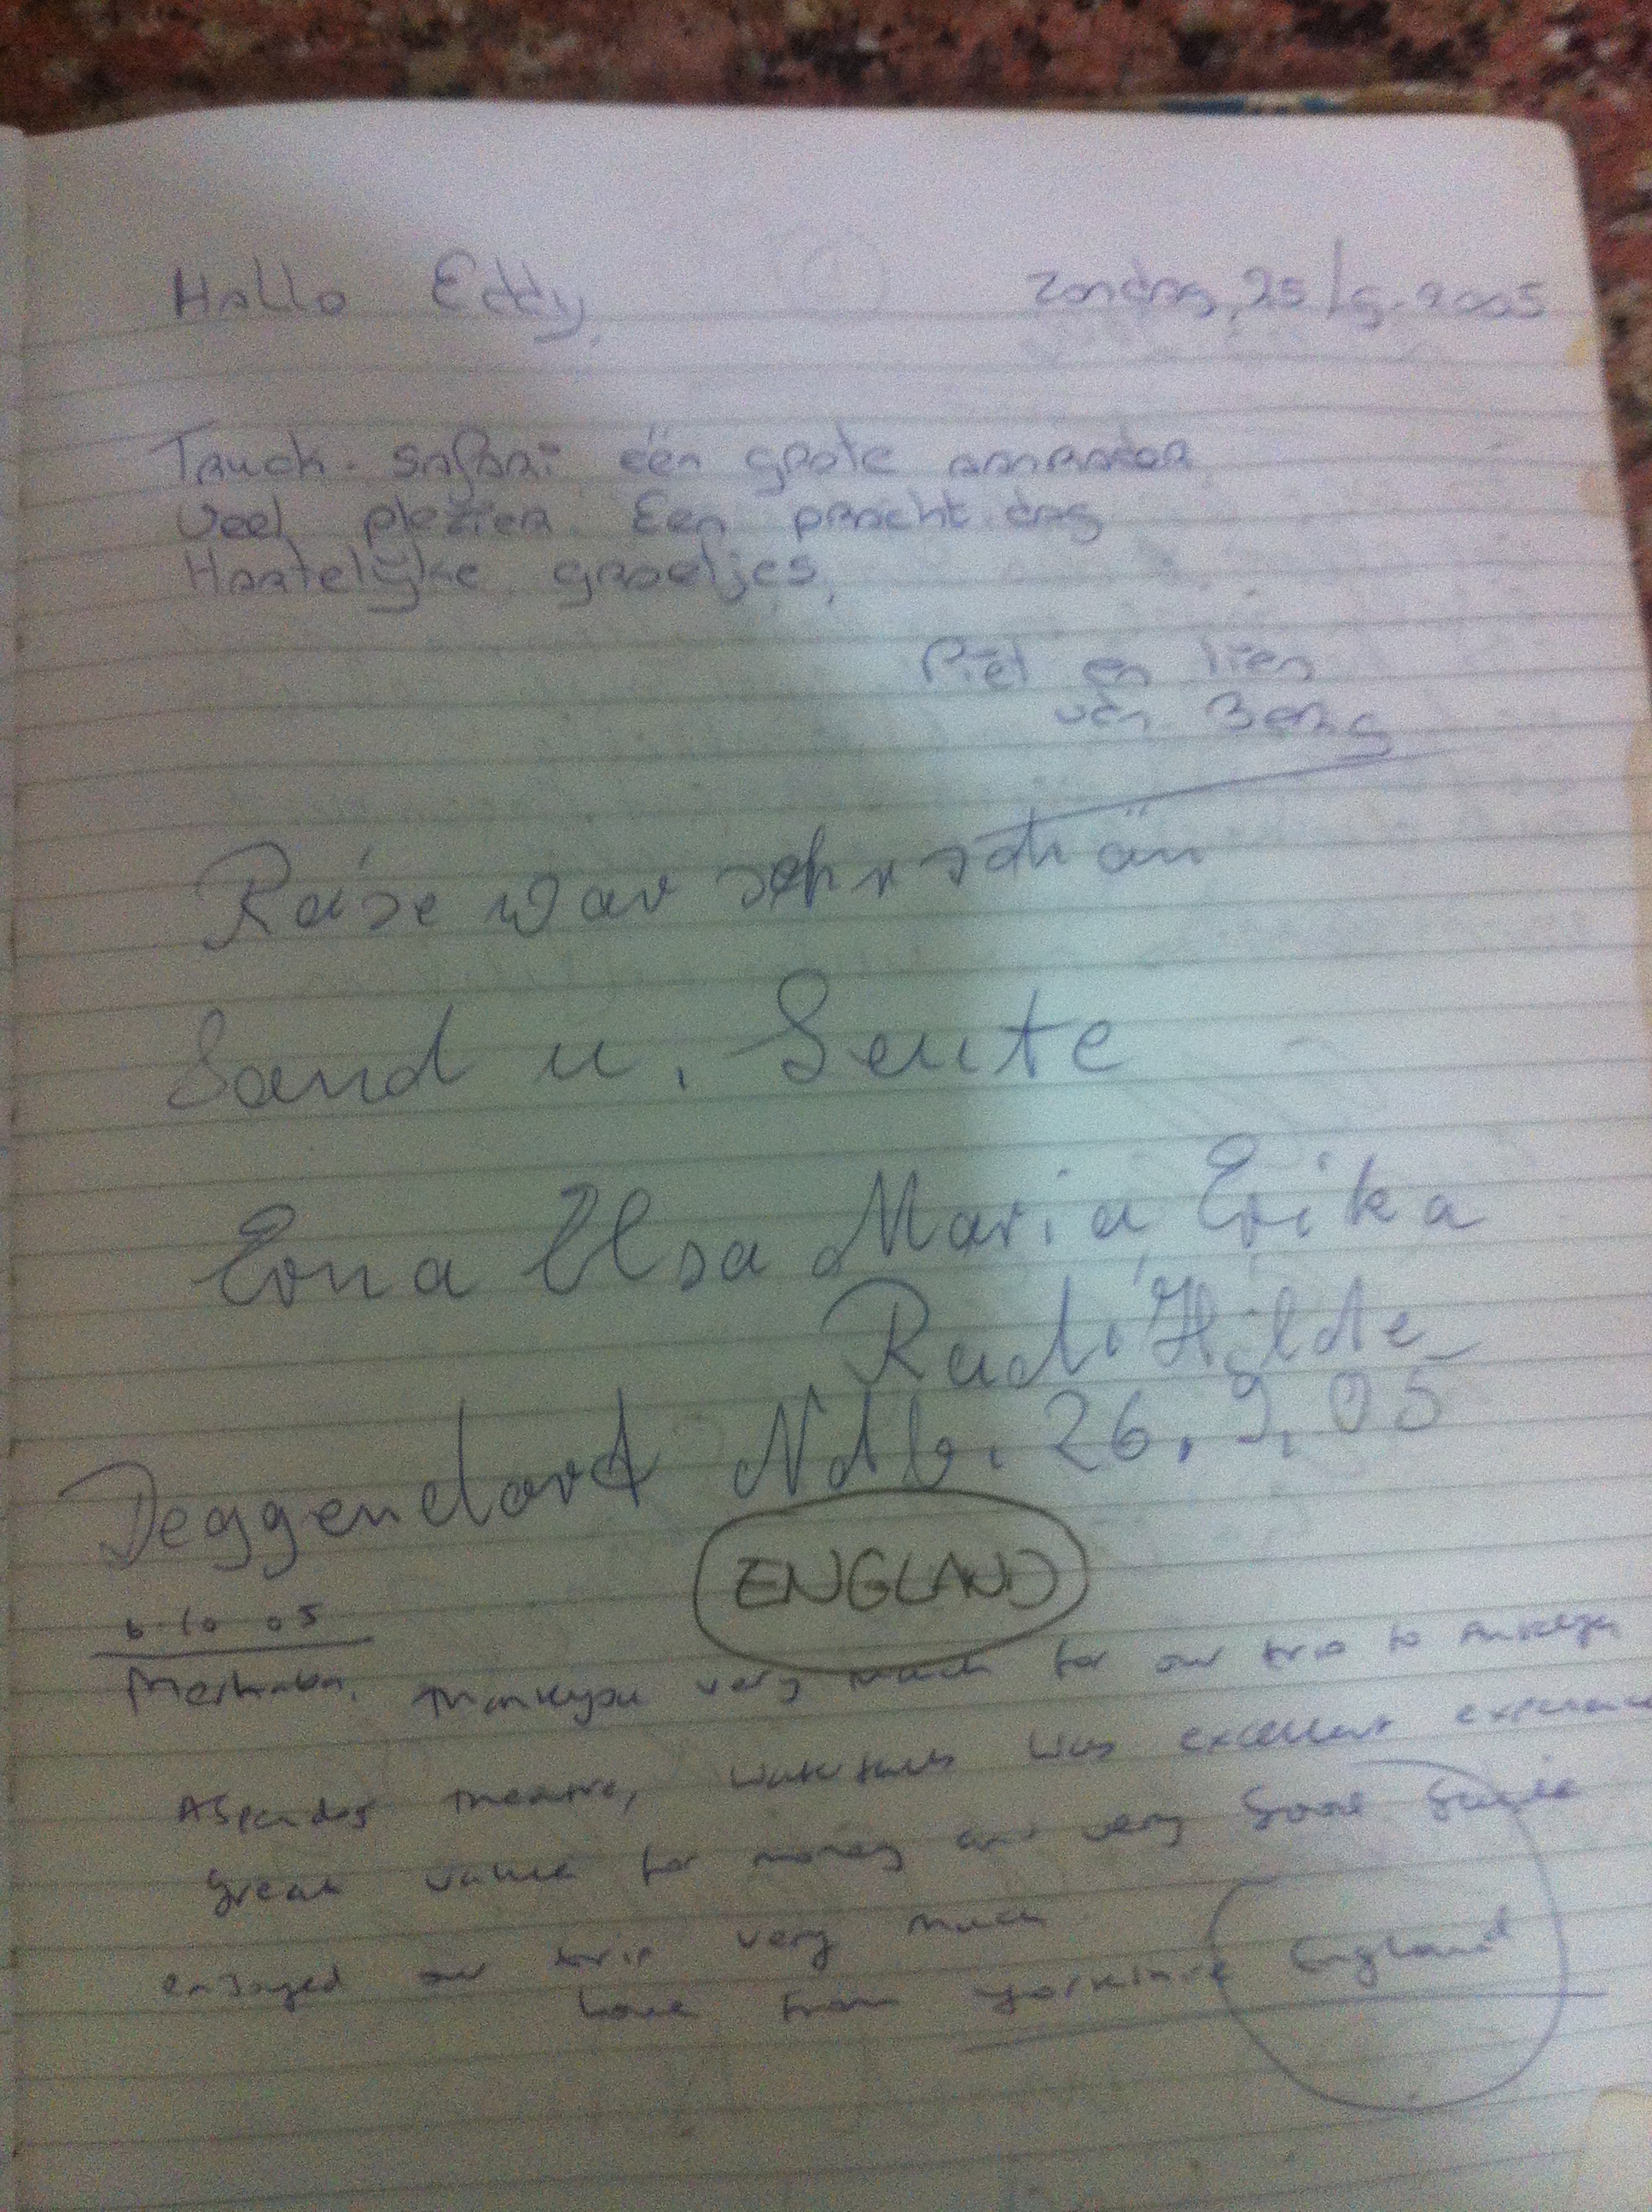 Hallo Eddy, Zondag, 25/9-2005
Truck-safari één grote aanrader
Veel plezier. Een pracht dag
Hartelijke groetjes,
Piet en Lien
van Berg
Reise war sehr schön
Land u. Leute
Erna Elsa Maria, Erika
Rudi Hilde
Deggendorf Ndb. 26.9.05
ENGLAND
6-10 05
Merhaba, Thankyou very much for our trip to
Aspendos Theatre, waterfalls was excellent experience
great value for money and very good guide
enjoyed our trip very much
Love from Yorkshire England